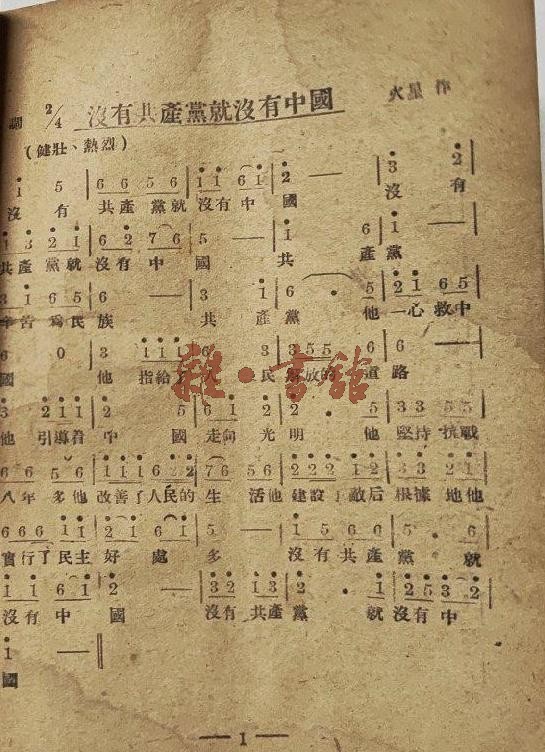 調 2/4 沒有共產黨就沒有中國 火星 作
(健壯、熱烈)
1 5 | 6 6 5 6 | 1 1 6 1 | 2 — | 3 2 |
沒 有 共產黨就 沒有中 國 沒 有
1 3 2 1 | 6 2 7 6 | 5 — | 1 6 | 1 —
共產黨就 沒有中 國 共 產 黨
3 1 6 5 | 6 — | 3 1 | 6 · 5 | 2 1 6 5
辛苦為民 族 共 產 黨 他 一心救中
6 0 3 | 1 1 1 | 6 3 | 3 5 5 | 6 —
國 他 指給 民 解放的 道 路
3 2 1 1 | 2 5 | 6 1 | 2 5 | 3 3 5 5
他 引導着 中 國 走向 光 明 他 堅持抗戰
6 6 5 6 | 1 1 1 6 2 2 | 7 6 5 6 | 2 2 2 1 2 | 3 3 2 1
八年多他 改善了人民的 生 活他 建設了敵后 根據地他
6 6 6 1 1 | 2 1 6 1 | 5 — | 1 5 6 6 | 5 · 6
實行了民主 好 處 多 沒有共產 黨 就
1 1 6 1 | 2 — | 3 2 1 3 | 2 · 1 | 2 5 3 2
沒有中 國 沒有共產 黨 就 沒有中
1 —
國
雜·書館
— 1 —